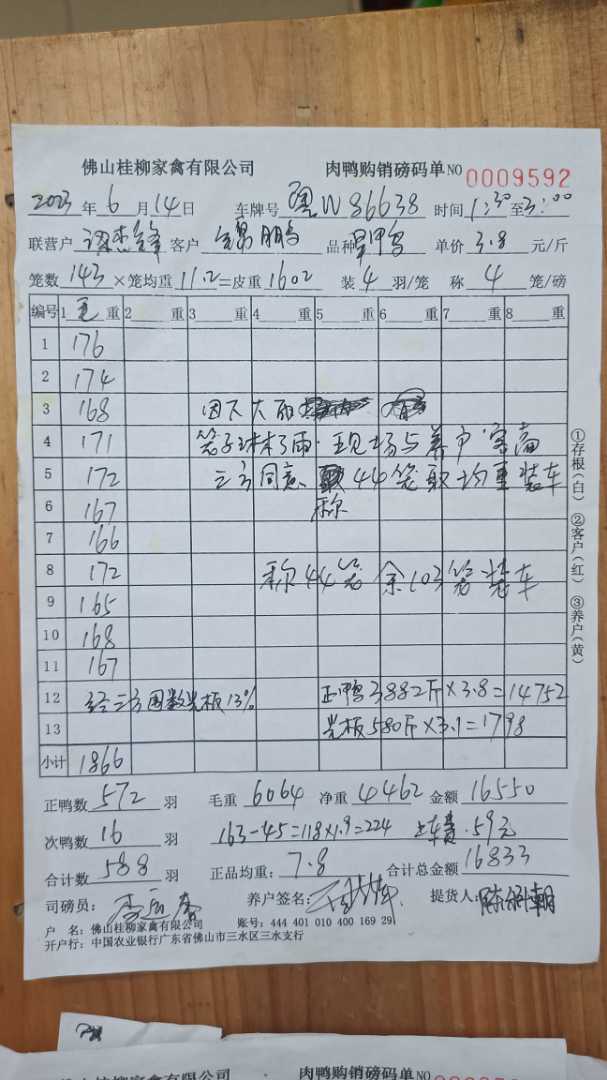 佛山桂柳家禽有限公司 肉鸭购销磅码单 NO 0009592
2023年6月14日 车牌号 粤W86638 时间1:30至3:00
联营户 客户 鹏 品种 单价3.8元/斤
笼数143×笼均重11.2=皮重1602 装4羽/笼 称4笼/磅
编号 1毛重 2重 3重 4重 5重 6重 7重 8重
1 176
2 174
3 168 因下大雨
4 171 笼子淋了雨.现场与养户.客商
5 172 三方同意、44笼取均重装车
6 167 称
7 166
8 172 称44笼 余103笼装车
9 165
10 168
11 167
12 经三方同意光板13% 正鸭3882斤×3.8=14752
13 光板580斤×3.1=1798
小计 1866
正鸭数572羽 毛重6064 净重4462 金额16550
次鸭数16羽 163-45=118×1.9=224 上车费.59元
合计数588羽 正品均重:7.8 合计总金额16833
司磅员: 养户签名: 提货人:
户 名:佛山桂柳家禽有限公司 账号:444 401 010 400 169 29
开户行:中国农业银行广东省佛山市三水区三水支行
①存根(白) ②客户(红) ③养户(黄)
佛山桂柳家禽有限公司 肉鸭购销磅码单NO